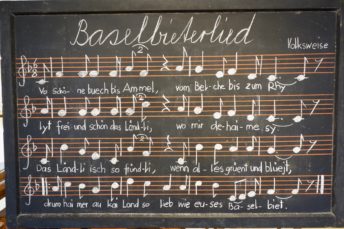 Baselbieterlied
Volksweise
2
Vo Schö-ne buech bis Ammel, vom Bel-che bis zum Rhy
2
Lyt frei und schön das Länd-li, wo mir de-hai-me sy
Das Länd-li isch so fründ-li, wenn al-les grüent und blüejt,
2
drum hai mer au kei Land so lieb wie eu-ses Ba-sel-biet.